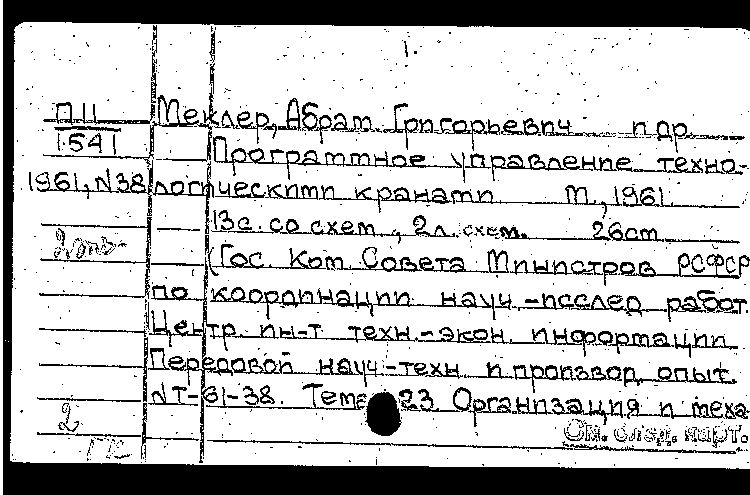 1.
П11 Меклер, Абрам Григорьевич и др.
1541 Программное управление техно-
1961, N38 логическими кранами М., 1961.
13с. со схем., 2л. схем. 26см
(Гос. Ком. Совета Министров РСФСР
по координации науч.-исслед. работ.
Центр. ин-т техн.-экон. информации
Передовой науч.-техн. и производ. опыт.
NТ-61-38. Тема 23 Организация и меха
2
См. след. карт.
ГК